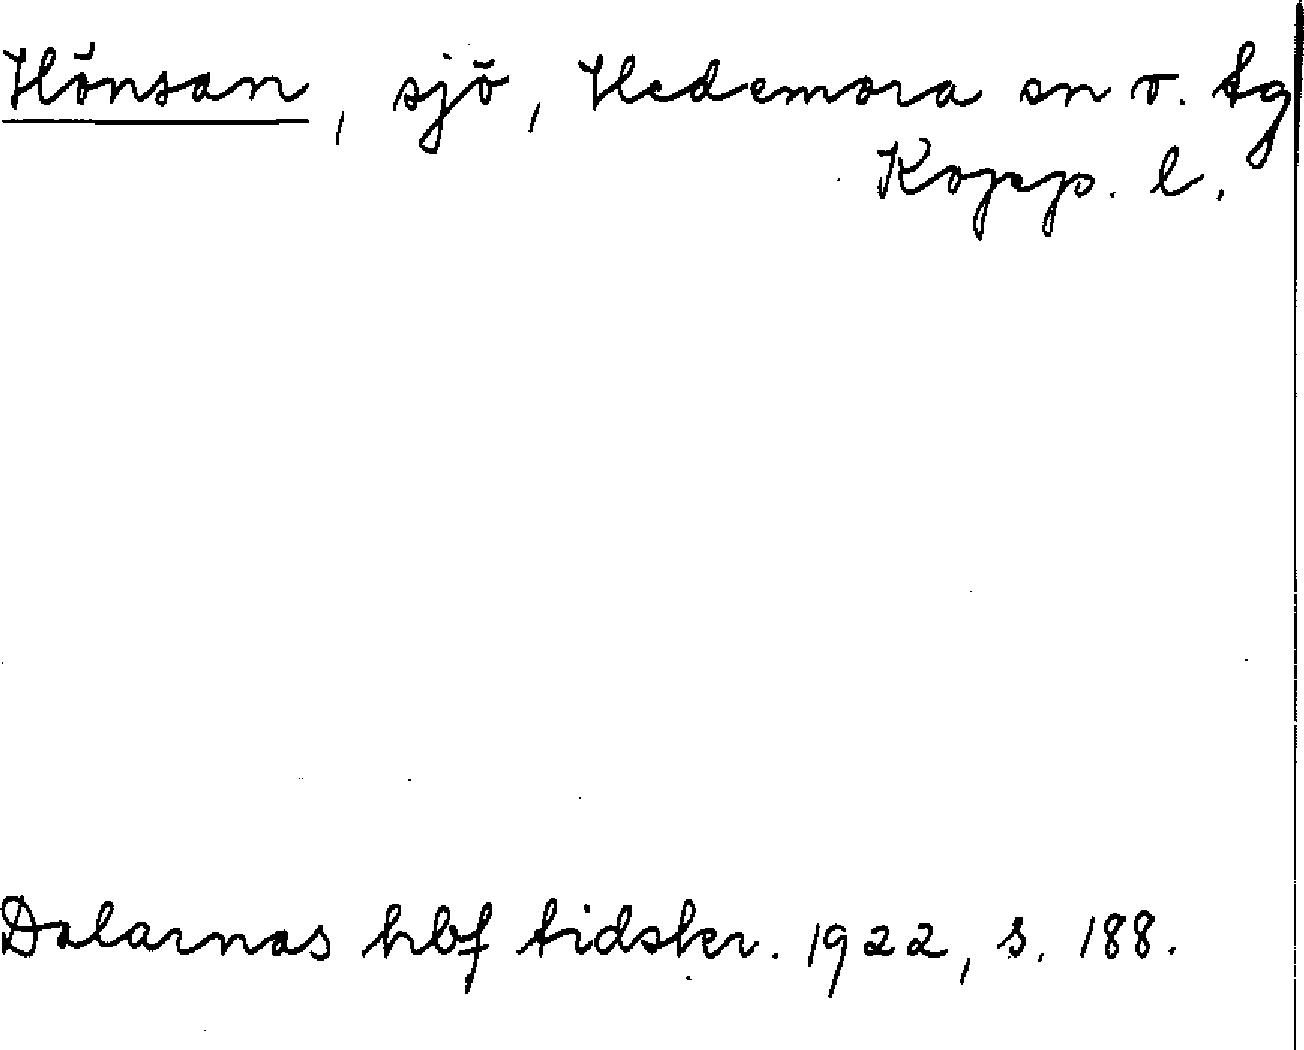 Hönsan, sjö, Hedemora sn o. tg
Kopp. l.
Dalarnas hbf tidskr. 1922, s. 188.